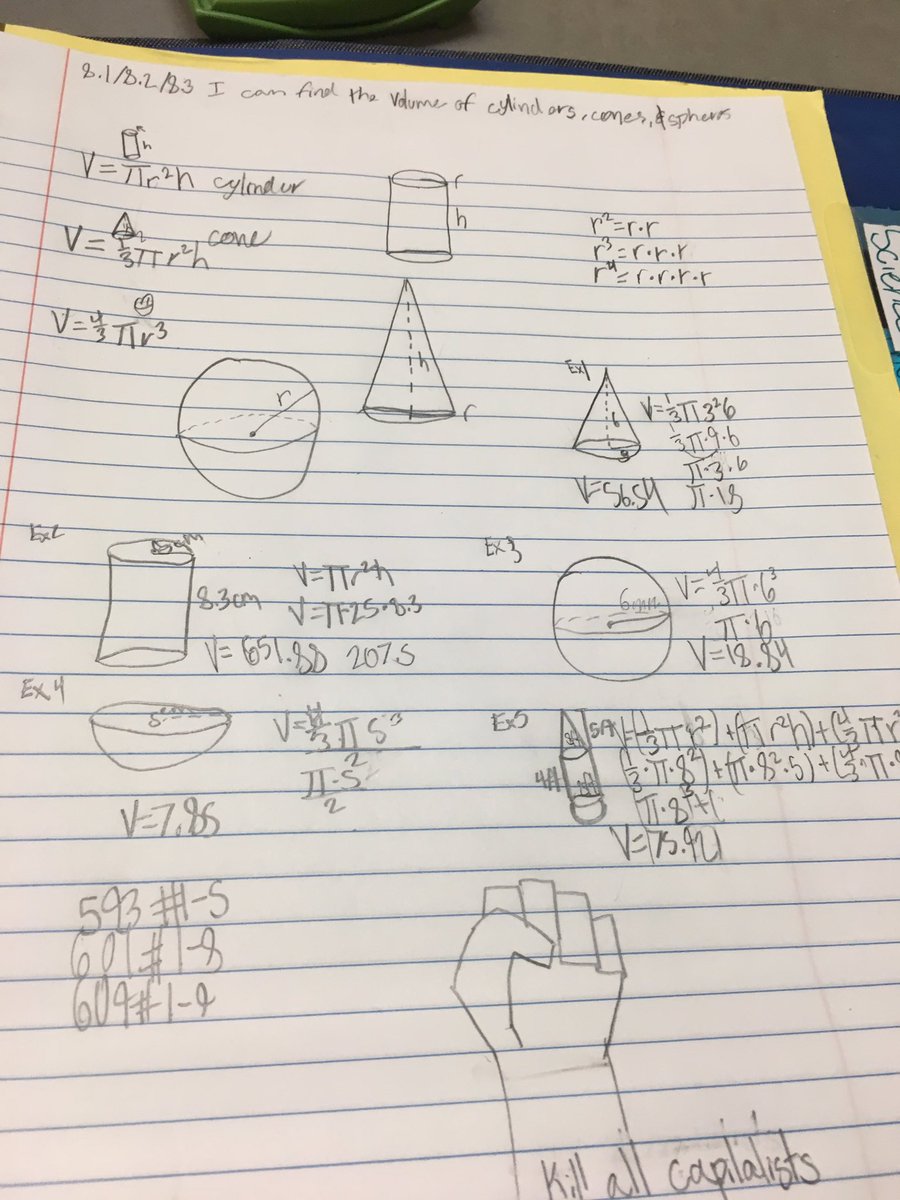 8.1/8.2/8.3 I can find the volume of cylindors, cones, & sphers
r
h
V=πr²h cylindur
V=⅓πr²h cone
V=4/3 πr³
r
h
h
r
r
r²=r·r
r³=r·r·r
r⁴=r·r·r·r
Ex1
6
3
V=⅓π3²6
⅓π·9·6
π·3·6
π·18
V=56.54
Ex2
5cm
8.3cm
V=πr²h
V=π·25·8.3
V=651.88 207.5
Ex 3
6mm
V=4/3π·6³
π·6
V=18.84
Ex4
5
V=4/3π5³
2
π·5
2
V=7.85
Ex5
5ft
4ft
V=(⅓πr²)+(πr²h)+(4/3πr
(⅓·π·8²)+(π·8²·5)+(4/3·π·
π·8³+(
V=175.921
593 #1-5
601 #1-8
609 #1-9
Kill all capitalists
Science